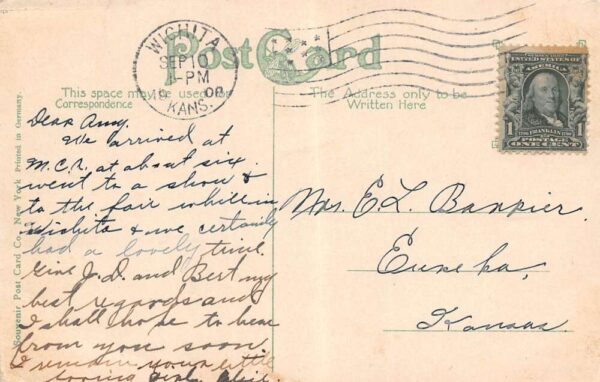 WICHITA
SEP 10
1-PM
1908
KANS.
Post Card
This space may be used for
Correspondence
The Address only to be
Written Here
UNITED STATES OF
AMERICA
1706 FRANKLIN 1790
POSTAGE
1 ONE CENT 1
Souvenir Post Card Co. New York Printed in Germany.
Dear Amy.
We arrived at
M.C.R. at about six.
went to a show &
to the fair while in
Wichita & we certainly
had a lovely time.
Give J. D. and Bert my
best regards and
I shall hope to hear
from you soon.
I remain your little
Mrs. E. L. Bankier.
Eureka,
Kansas.